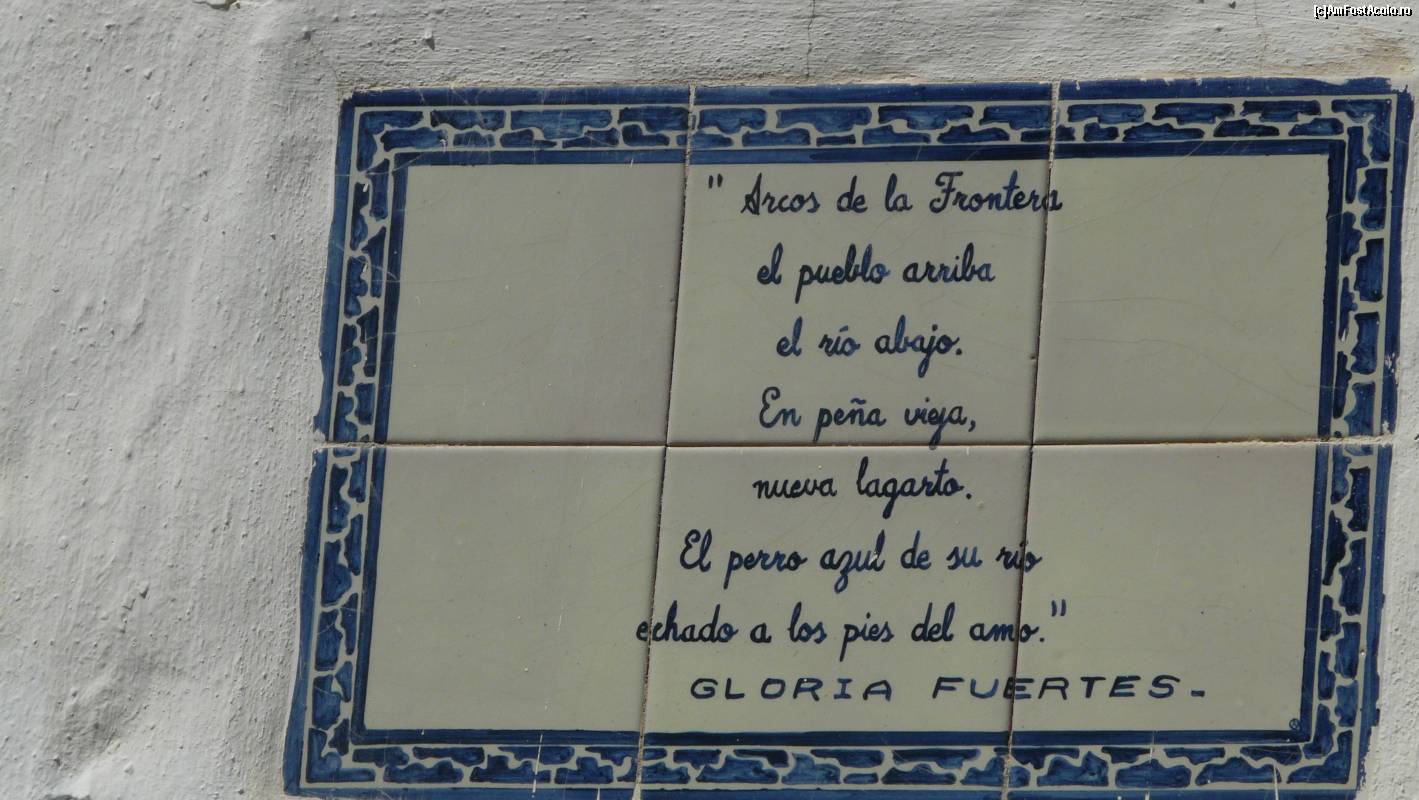 [c]AmFostAcolo.ro
" Arcos de la Frontera
el pueblo arriba
el río abajo.
En peña vieja,
nueva lagarto.
El perro azul de su río
echado a los pies del amo."
GLORIA FUERTES-